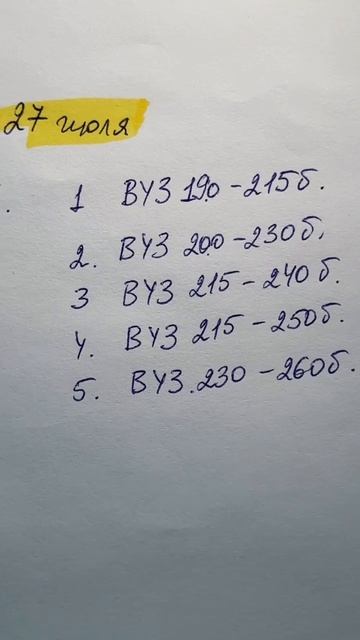 27 июля
1 ВУЗ 190 - 215б.
2. ВУЗ 200 - 230б.
3 ВУЗ 215 - 240б.
4. ВУЗ 215 - 250б.
5. ВУЗ. 230 - 260б.